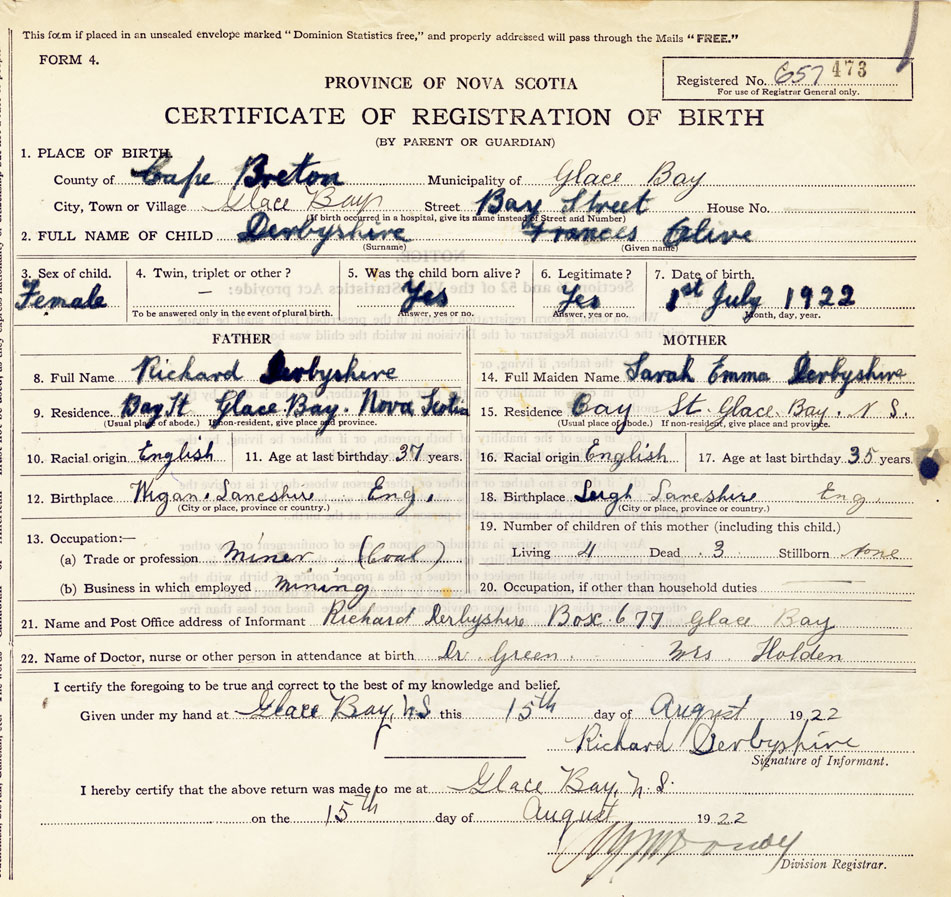 This form if placed in an unsealed envelope marked "Dominion Statistics free," and properly addressed will pass through the Mails "FREE."
FORM 4.
Registered No. 657 473
For use of Registrar General only.
PROVINCE OF NOVA SCOTIA
CERTIFICATE OF REGISTRATION OF BIRTH
(BY PARENT OR GUARDIAN)
1. PLACE OF BIRTH
County of Cape Breton Municipality of Glace Bay
City, Town or Village Glace Bay Street Bay Street House No.
(If birth occurred in a hospital, give its name instead of Street and Number)
2. FULL NAME OF CHILD Derbyshire Frances Olive
(Surname) (Given name)
3. Sex of child. 4. Twin, triplet or other? 5. Was the child born alive? 6. Legitimate? 7. Date of birth.
Female — Yes Yes 1st July 1922
To be answered only in the event of plural birth. Answer, yes or no. Answer, yes or no. Month, day, year.
FATHER MOTHER
8. Full Name Richard Derbyshire 14. Full Maiden Name Sarah Emma Derbyshire
9. Residence. Bay St Glace Bay. Nova Scotia 15. Residence Bay St. Glace Bay. N S.
(Usual place of abode.) If non-resident, give place and province. (Usual place of abode.) If non-resident, give place and province.
10. Racial origin English 11. Age at last birthday 37 years. 16. Racial origin English 17. Age at last birthday 35 years.
12. Birthplace Wigan. Lancshire Eng. 18. Birthplace Leigh Lancshire Eng.
(City or place, province or country.) (City or place, province or country.)
13. Occupation:— 19. Number of children of this mother (including this child.)
(a) Trade or profession Miner (Coal) Living 4 Dead 3 Stillborn None
(b) Business in which employed Mining 20. Occupation, if other than household duties
21. Name and Post Office address of Informant Richard Derbyshire Box 677 Glace Bay
22. Name of Doctor, nurse or other person in attendance at birth Dr Green. Mrs Holden
I certify the foregoing to be true and correct to the best of my knowledge and belief.
Given under my hand at Glace Bay, N S this 15th day of August 1922
Richard Derbyshire
Signature of Informant.
I hereby certify that the above return was made to me at Glace Bay, N. S.
on the 15th day of August 1922
Division Registrar.